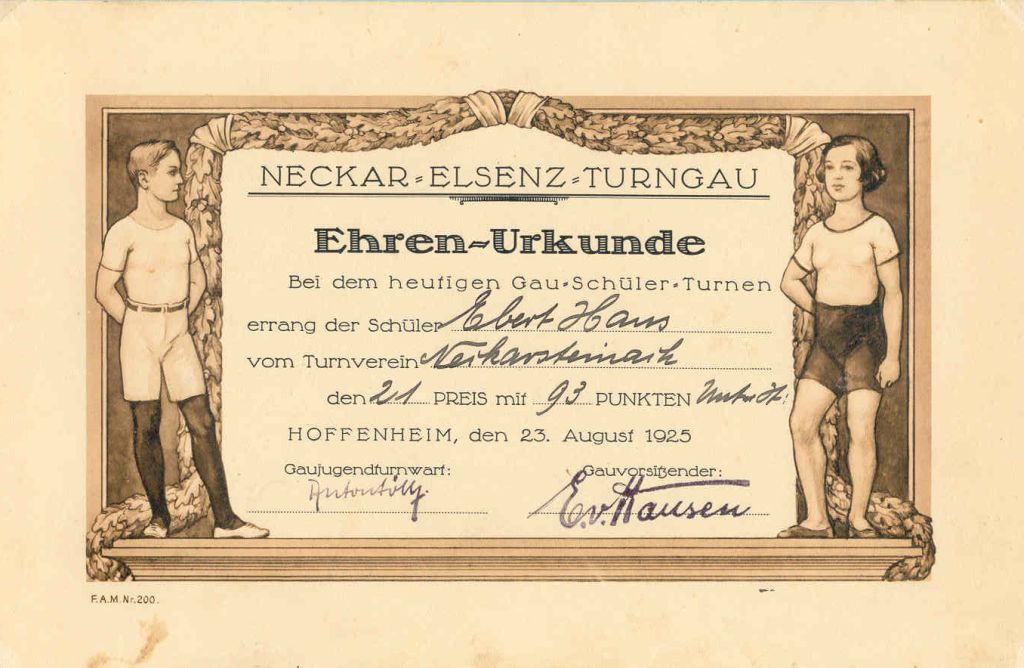 NECKAR=ELSENZ=TURNGAU
Ehren=Urkunde
Bei dem heutigen Gau=Schüler=Turnen
errang der Schüler Ebert Hans
vom Turnverein Neckarsteinach
den 21 PREIS mit 93 PUNKTEN
HOFFENHEIM, den 23. August 1925
Gaujugendturnwart: Gauvorsitzender:
E.v.Hausen
F.A.M.Nr.200.